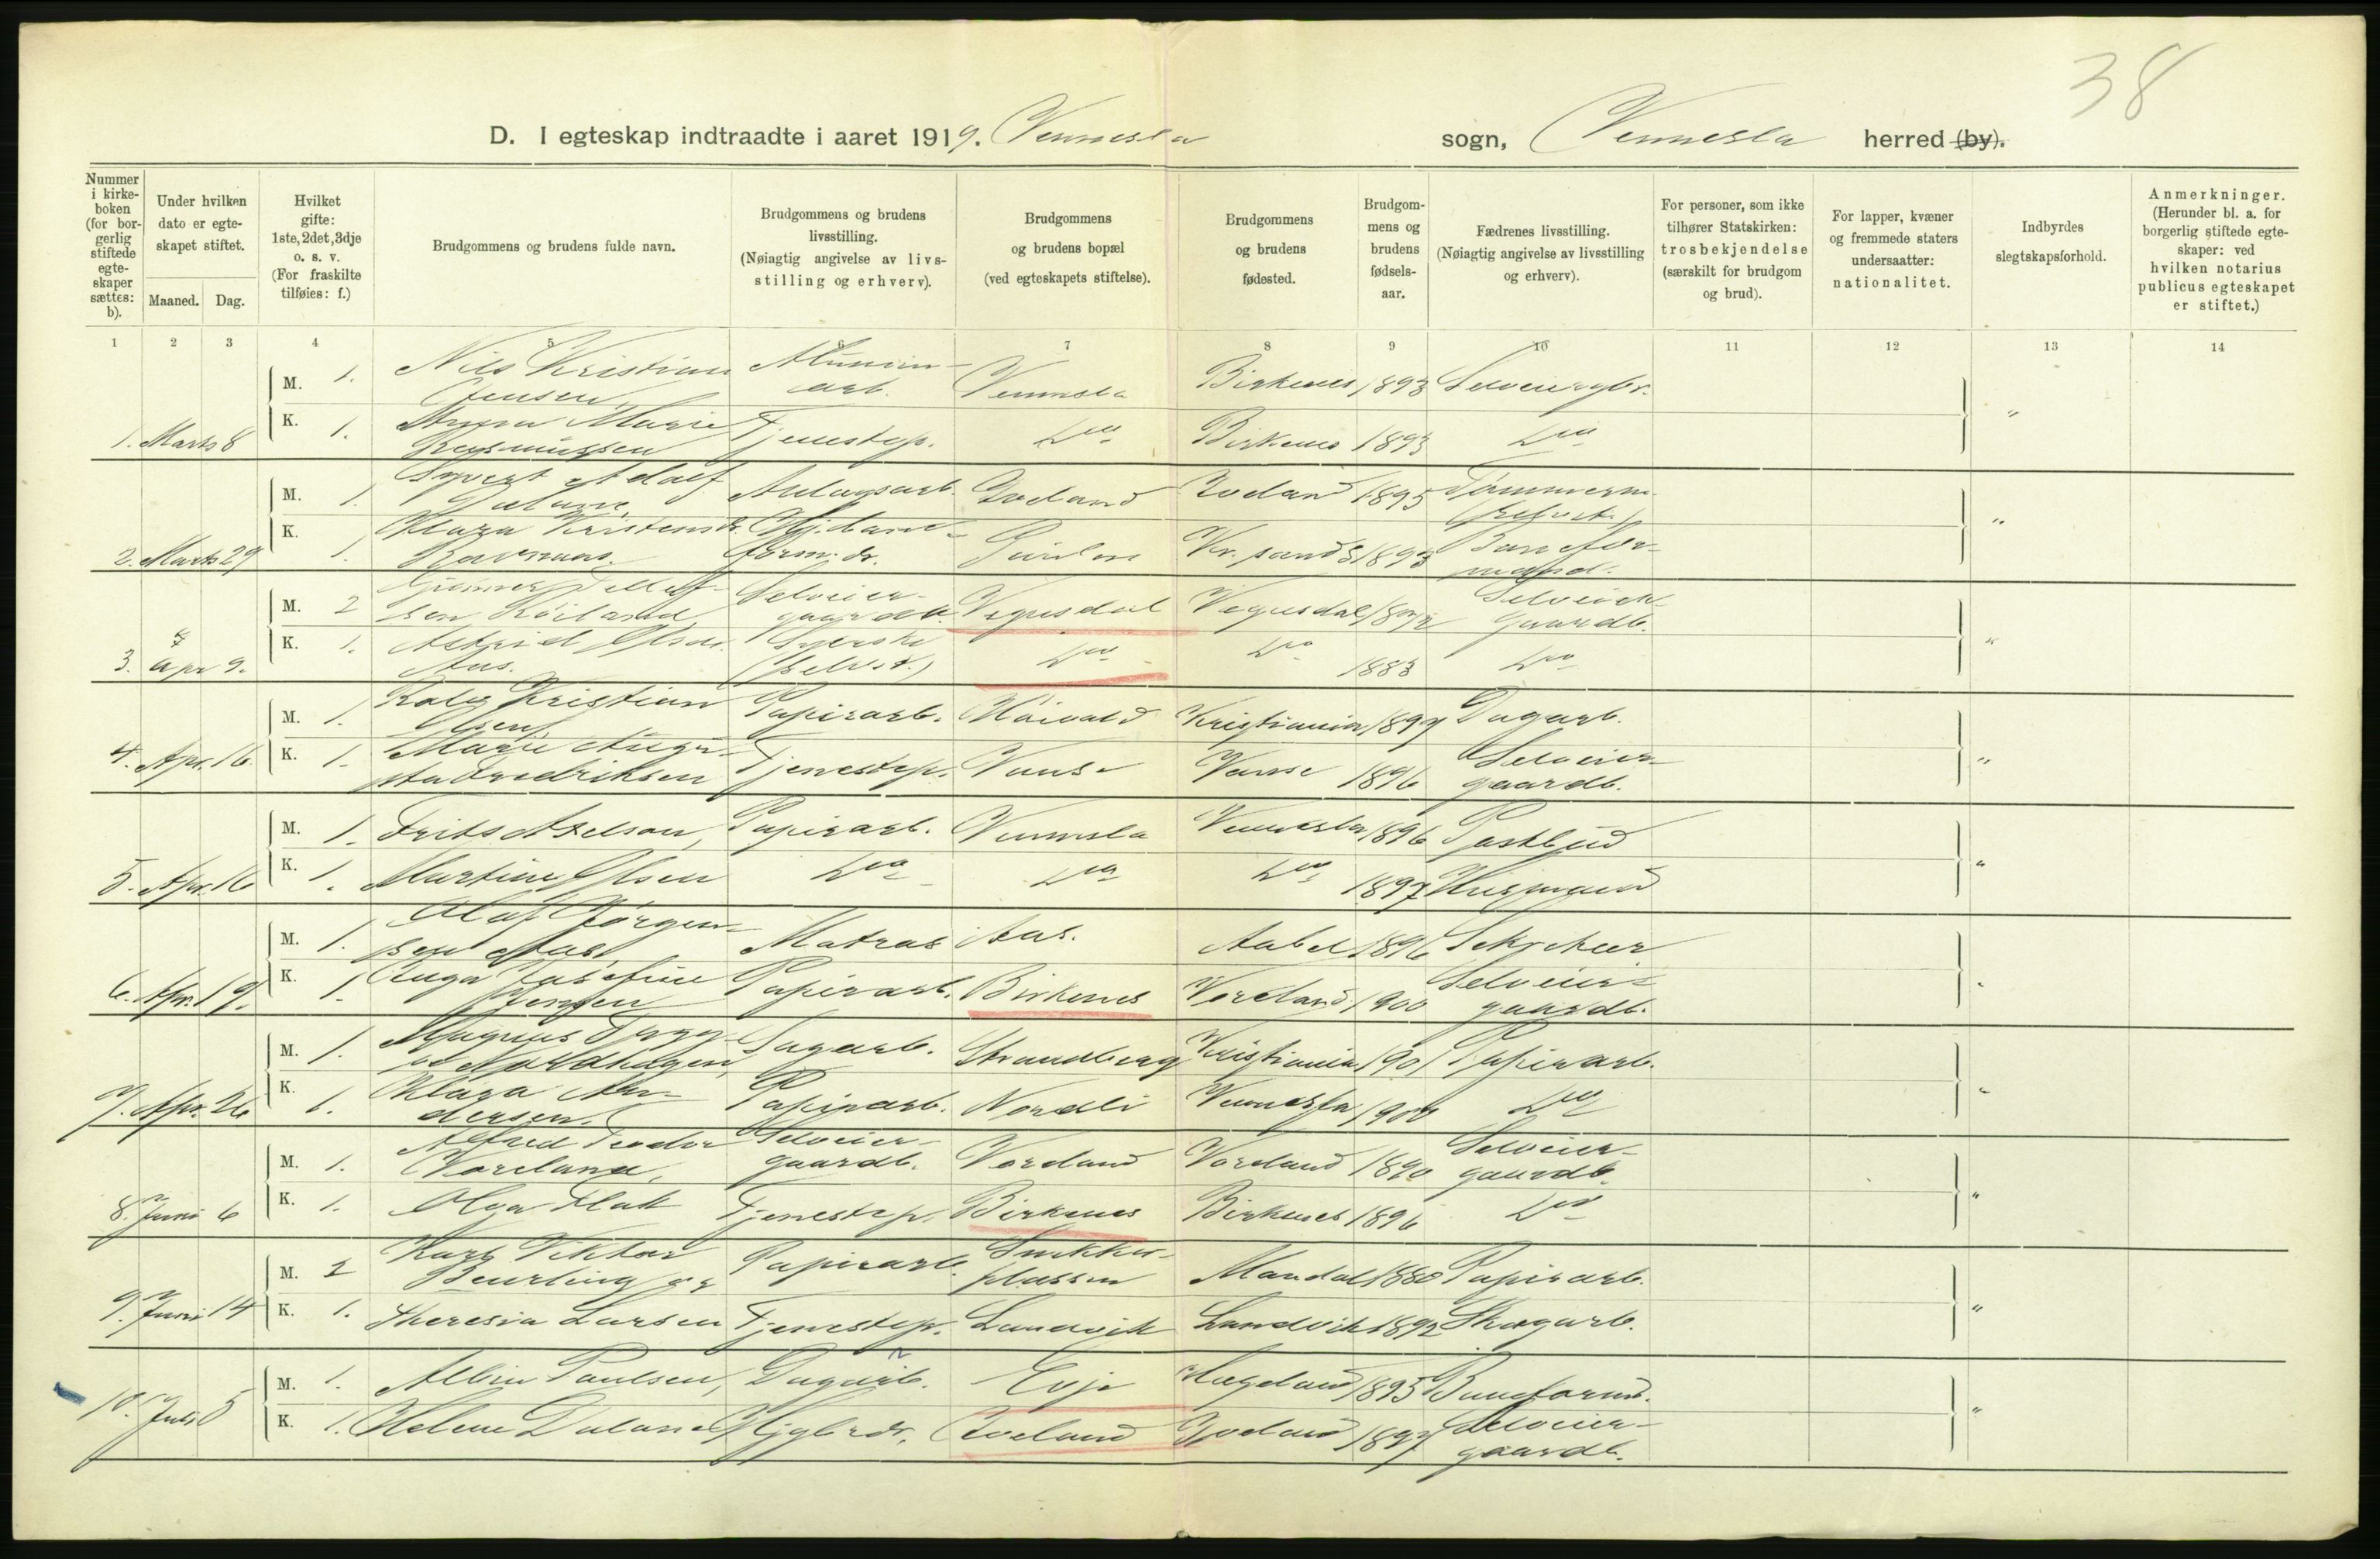 38
D. I egteskap indtraadte i aaret 1919. Vennesla sogn, Vennesla herred (by).
Nummer i kirke-boken (for bor-gerlig stiftede egte-skaper sættes: b).
Under hvilken dato er egte-skapet stiftet.
Maaned. Dag.
Hvilket gifte: 1ste, 2det, 3dje o. s. v. (For fraskilte tilføies: f.)
Brudgommens og brudens fulde navn.
Brudgommens og brudens livsstilling. (Nøiagtig angivelse av livs-stilling og erhverv).
Brudgommens og brudens bopæl (ved egteskapets stiftelse).
Brudgommens og brudens fødested.
Brudgom-mens og brudens fødsels-aar.
Fædrenes livsstilling. (Nøiagtig angivelse av livsstilling og erhverv).
For personer, som ikke tilhører Statskirken: trosbekjendelse (særskilt for brudgom og brud).
For lapper, kvæner og fremmede staters undersaatter: nationalitet.
Indbyrdes slegtskapsforhold.
Anmerkninger. (Herunder bl. a. for borgerlig stiftede egte-skaper: ved hvilken notarius publicus egteskapet er stiftet.)
1 2 3 4 5 6 7 8 9 10 11 12 13 14
M. 1. Nils Kristian Jensen, Alumin-arb. Vennesla Birkenes 1893
1. Marts 8 K. 1. Anna Marie Rasmussen Tjenestep. Do Birkenes 1893 Do "
M. 1. Syvert Adolf Dalane, Anlægsarb. Iveland Iveland 1895 Tømmerm.
2. Marts 29 K. 1. Kr.sand S 1893 Baneform-mand. "
M. 2 Gunner Selveier-gaardb. Vegusdal Vegusdal Selveier-gaardb.
3. Apr 9. K. 1. Astrid Olsen Aas. Do Do 1883 Do "
M. 1. Kristian Olsen, Papirarb. Kristiania 1897 Dagarb.
4. Apr. 16. K. 1. Marie Augu-sta Fredriksen Tjenestep. Vanse Vanse 1896 Selveier-gaardb. "
M. 1. Frits Axelson, Papirarb. Vennesla Vennesla 1896 Postbud
5. Apr. 16 K. 1. Martine Olsen Do Do Do 1897 Husmand "
M. 1. Olaf Jørgen-sen Aas, Matros Aas. 1896
6. Apr. 19. K. 1. Josefine Jensen Papirarb. Birkenes Vereland 1900 Selveier-gaardb. "
M. 1. Magnus Nordhagen, Sagarb. Strandberg Kristiania 1901 Papirarb.
7. Apr. 26 K. 1. Klara An-dersen. Papirarb. Nordli Vennesla 1900 Do "
M. 1. Alfred Teodor Voreland, Selveier-gaardb. Voreland Voreland 1890 Selveier-gaardb.
8. Juni 6 K. 1. Olga Flak Tjenestep. Birkenes Birkenes 1896 Do "
M. 2 Karl Viktor Beurling og Papirarb. Mandal 1880 Papirarb.
9. Juni 14 K. 1. Theresia Larsen Tjenestep. Landvik Landvik 1892 Skogarb. "
M. 1. Albin Paulsen, Dagarb. Evje Hægeland 1895
10. Juli 5 K. 1. Helene Dalane Iveland Iveland 1897 Selveier-gaardb. "